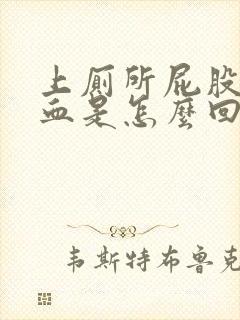 上廁所屁股
血是怎麼回
韦斯特布鲁克